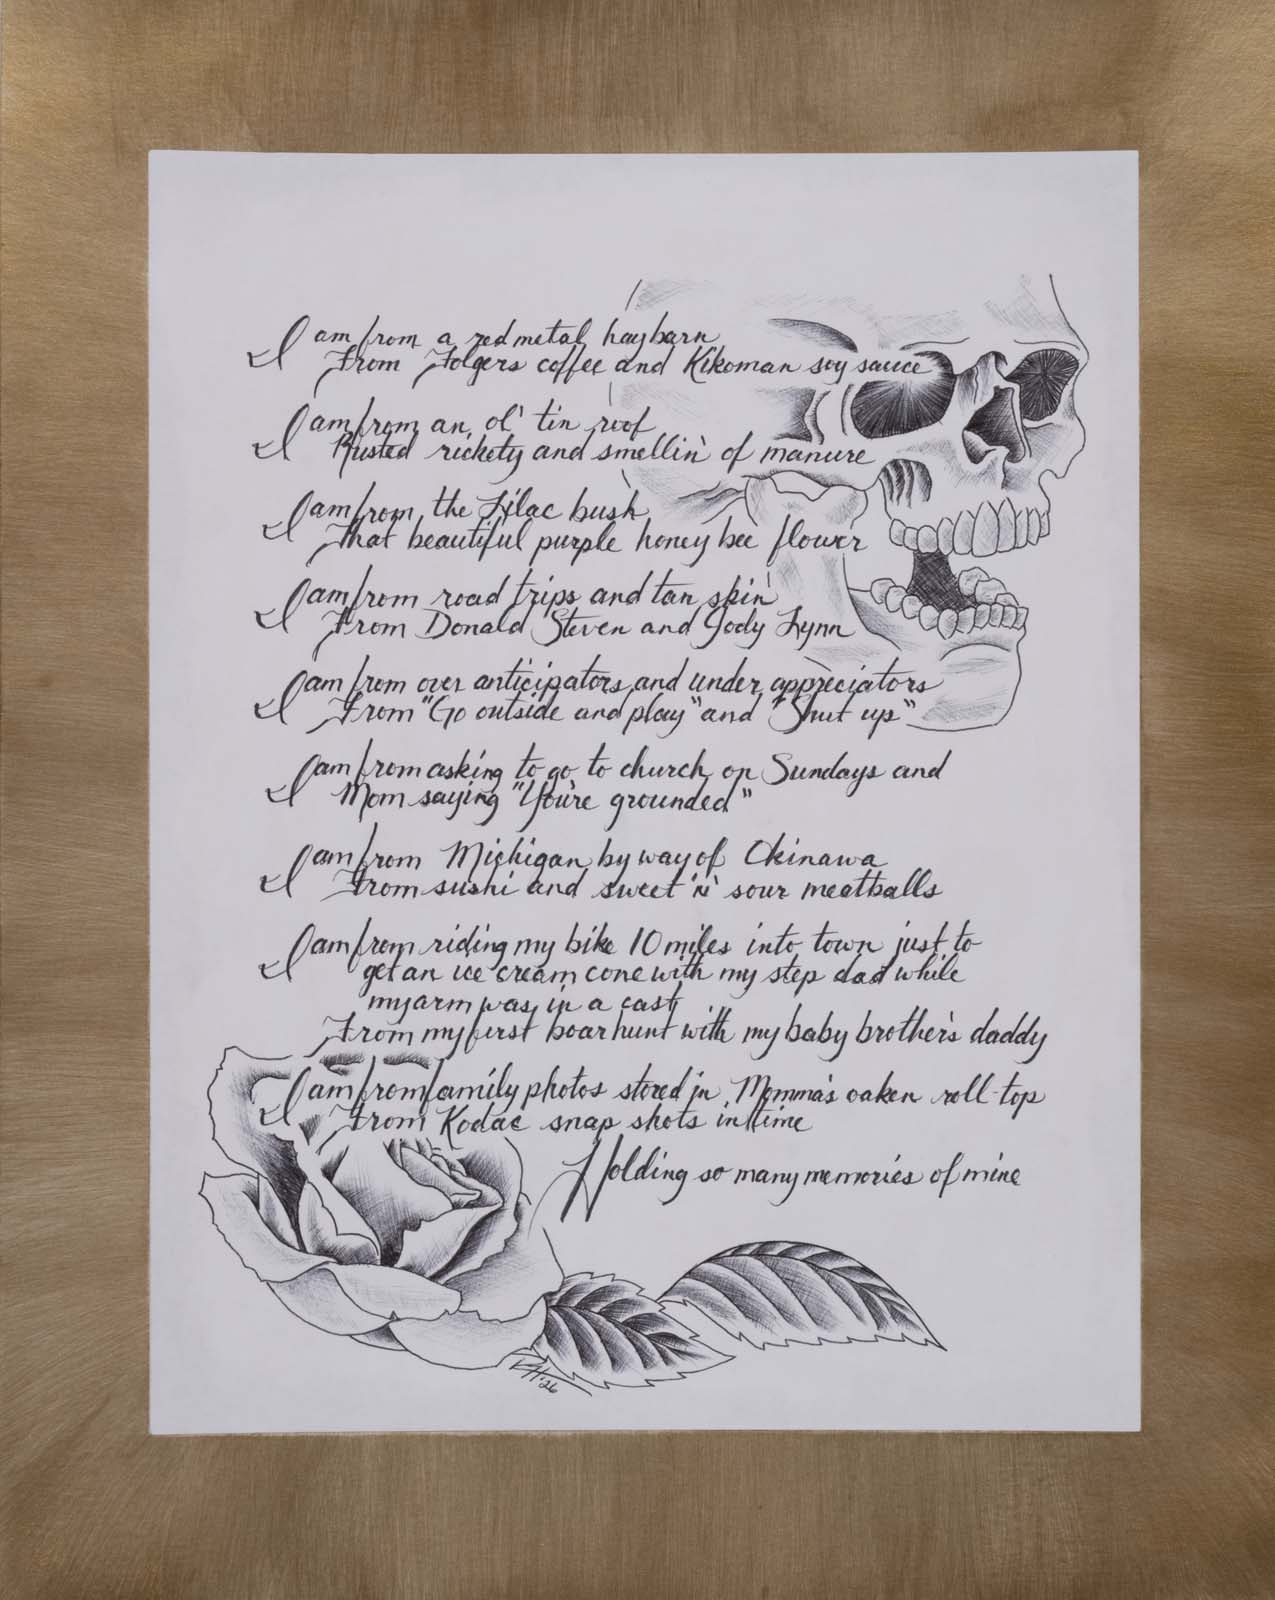 I am from a red metal hay barn
From Folgers coffee and Kikoman soy sauce
I am from an ol' tin roof
Rusted rickety and smellin' of manure
I am from the Lilac bush
That beautiful purple honey bee flower
I am from road trips and tan skin
From Donald Steven and Jody Lynn
I am from over anticipators and under appreciators
From "Go outside and play" and "Shut up"
I am from asking to go to church on Sundays and
Mom saying "You're grounded"
I am from Michigan by way of Okinawa
From sushi and sweet 'n' sour meatballs
I am from riding my bike 10 miles into town just to
get an ice cream cone with my step dad while
my arm was in a cast
From my first boar hunt with my baby brother's daddy
I am from family photos stored in Momma's oaken roll-top
From Kodac snap shots in time
Holding so many memories of mine
KH '26